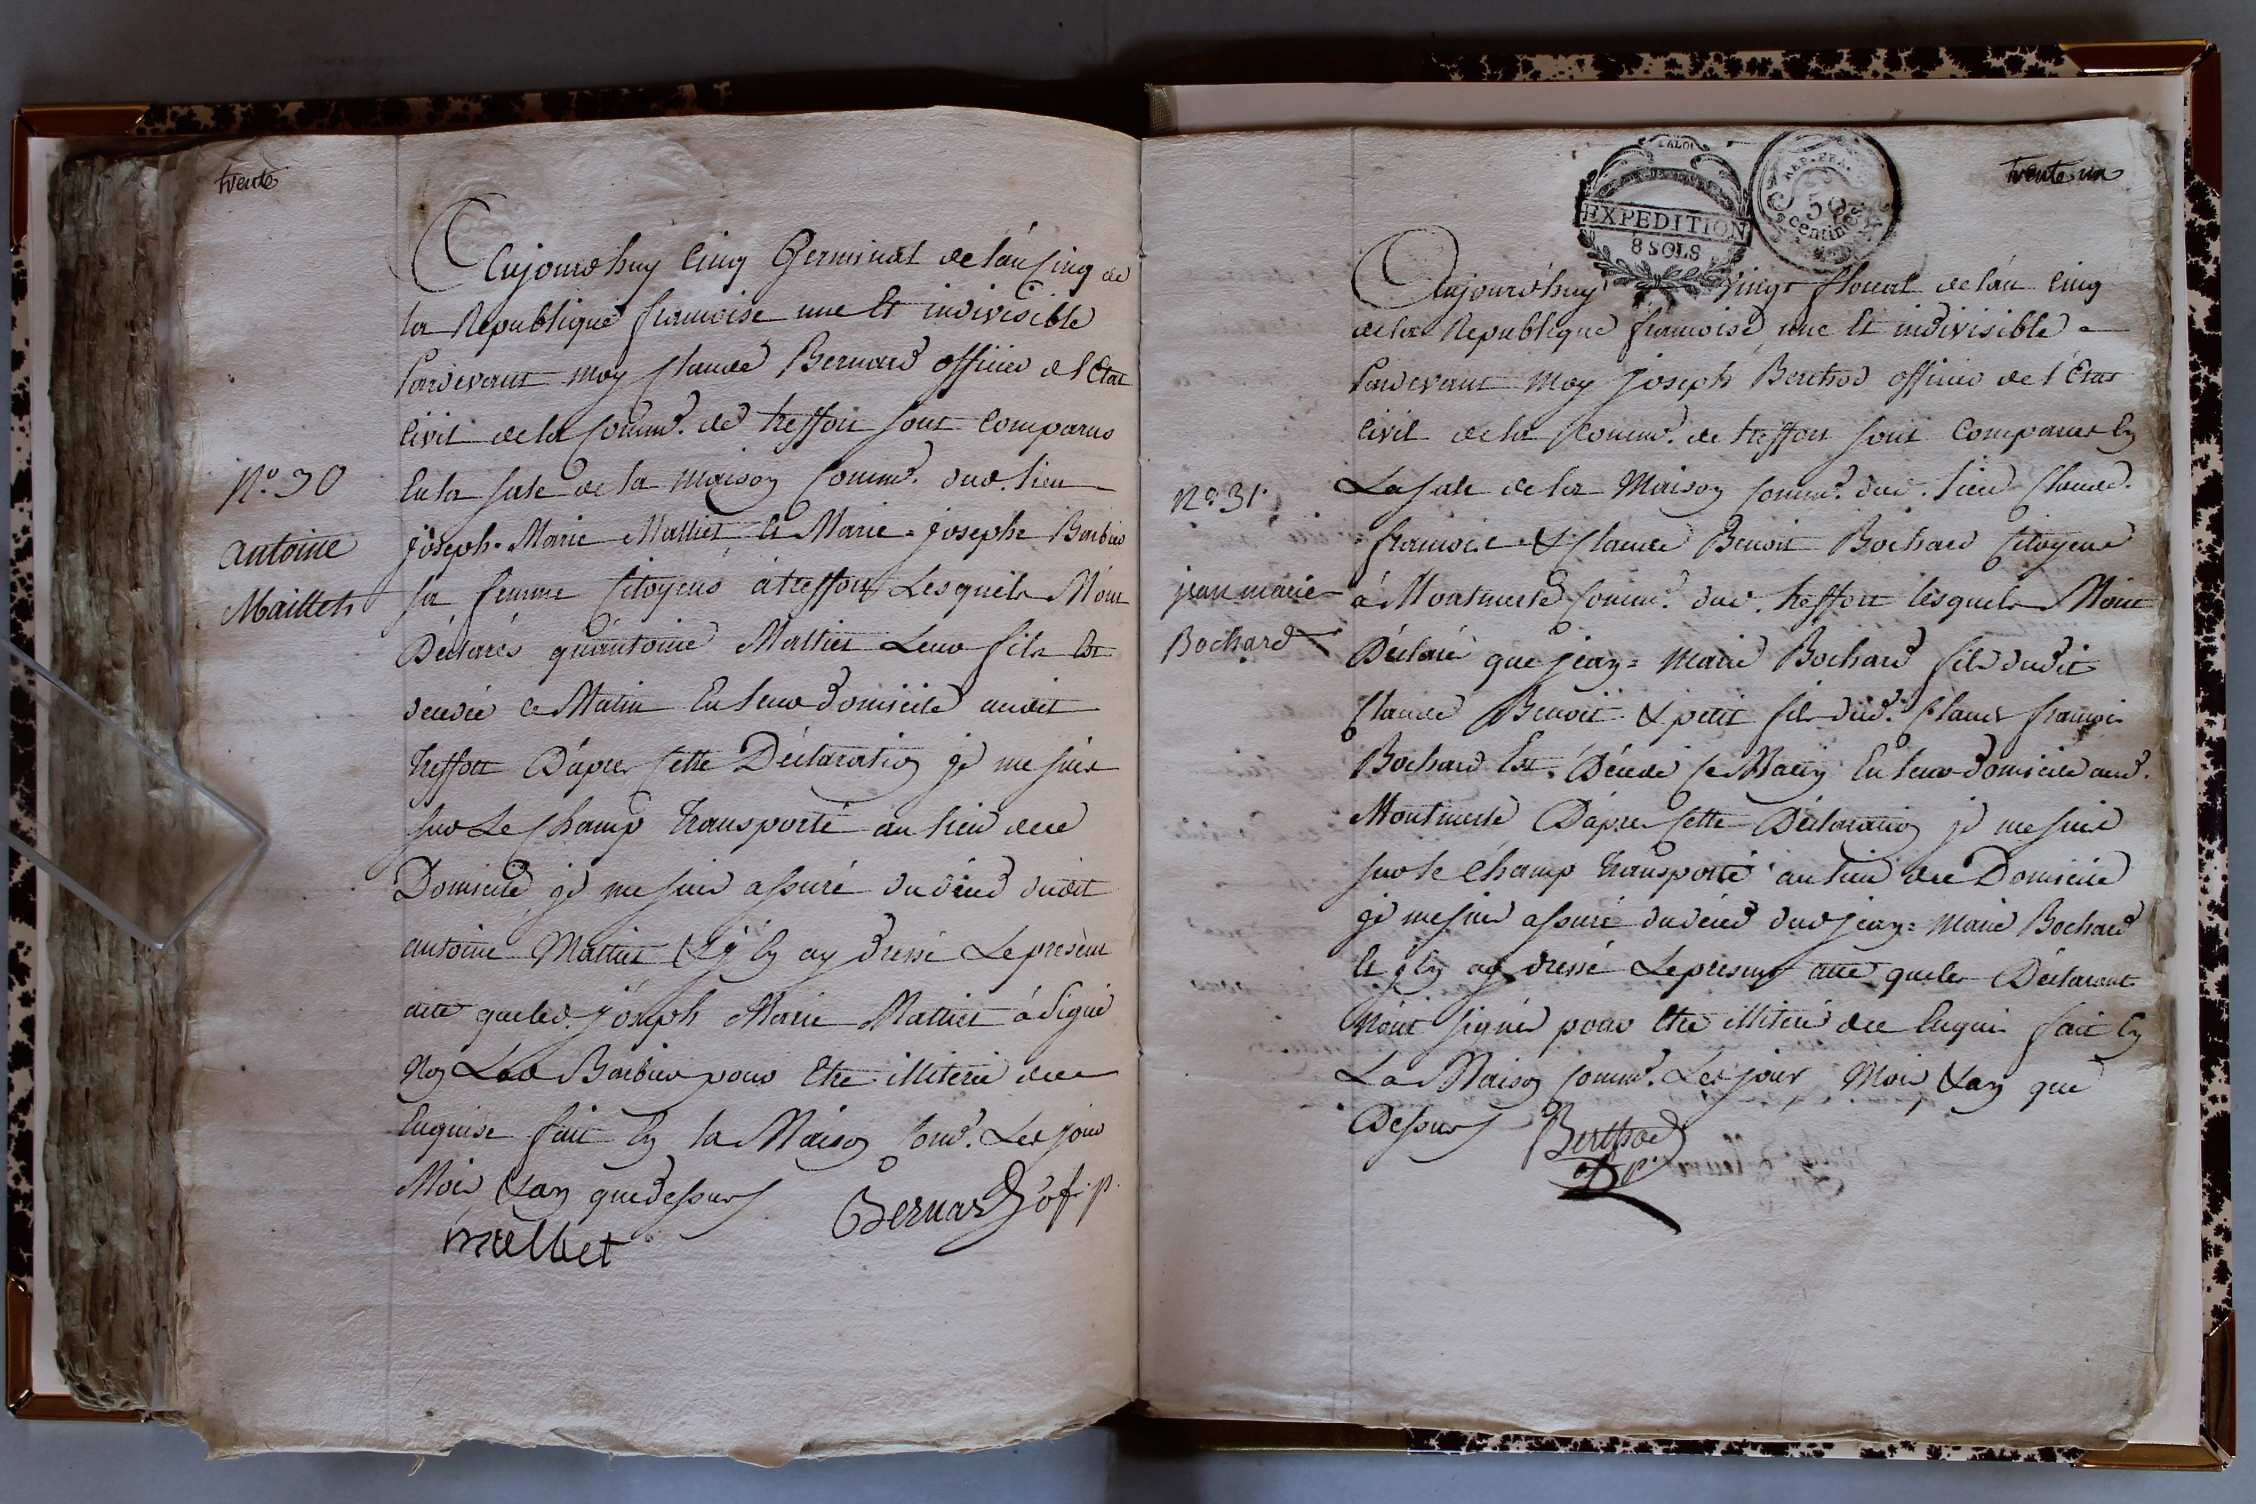 trente
Aujourdhuy Cinq Germinal de lán Cinq de
la Republique francoise une Et indivisible
Pardevant moy Claude Bernard officier de l'Etat
Civil de la Comm.e de treffort sont Comparus
En la sale de la Maison Comm.e dud. lieu
N.o 30
Antoine
Maillet
joseph-Marie Malliet Et Marie-josephe Barbier
sa femme Citoyens á treffort Lesquels M'ont
Déclarés qu'antoine Malliet Leur fils Est
decedé ce Matin En leur Domicile audit
treffort D'apres Cette Déclaration je me suis
sur Le Champ transporté au lieu de ce
Domicile je me suis assuré du décés dudit
antoine Malliet & j'En ay Dressé Le présent
acte que led. joseph Marie Malliet á Signé
Non Lad Barbier pour Etre illiterée de ce
Enquise fait En la Maison Com.e Les jour
Mois & an que dessus
Bernard of. p.
mallet
EXPEDITION
8 SOLS
REP. FRA.
50
centimes
trente un
Aujourd'huy vingt floreal de lán Cinq
de la Republique francoise une Et indivisible
Pardevant Moy joseph Berthod officier de l'Etat
Civil de la Comm.e de treffort sont Comparus En
La sale de la Maison Comm.e dud. lieu Claude
N.o 31.
jean marie
Bochard
francois & Claude Benoit Bochard Citoyens
á Montmerle Comm.e dud. treffort lesquels M'ont
Déclaré que jean=Marie Bochard fils dudit
Claude Benoit & petit fils dud. Claude francois
Bochard Est Décedé Ce Matin En leur Domicile aud.
Montmerle D'apres Cette Déclaration je me suis
sur le Champ transporté au lieu de ce Domicile
je me suis assuré du décés dud jean=Marie Bochard
Et j'En ay dressé Le present acte que les Déclarant
N'ont signés pour Etre illiteré de ce Enquis fait En
La Maison Comm.e Les jour, Mois, & an que
Dessus
Berthod
of. p.